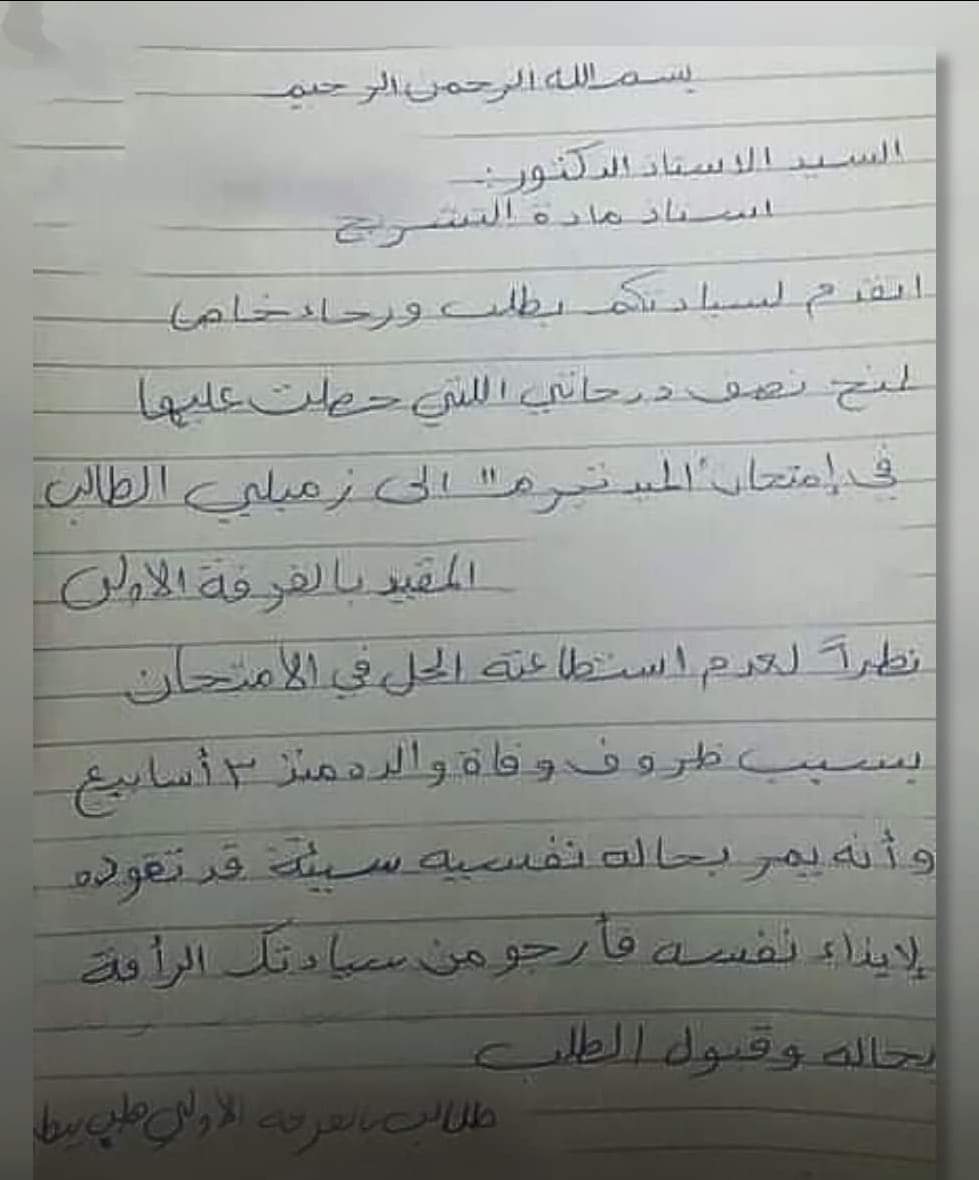 بسم الله الرحمن الرحيم
السيد الاستاذ الدكتور :ـ
استاذ مادة التشريح
اتقدم لسيادتكم بطلب ورجاء خاص
لمنح نصف درجاتي اللتي حصلت عليها
في إمتحان "الميدتيرم" الى زميلي الطالب
المقيد بالفرقة الاولى
نظراً لعدم استطاعته الحل في الامتحان
بسبب ظروف وفاة والده منذ ٣ أسابيع
وأنه يمر بحاله نفسيه سيئة قد تقوده
لإيذاء نفسه فأرجو من سيادتك الرأفة
بحاله وقبول الطلب
طالب بالفرقه الاولي طب بيطري